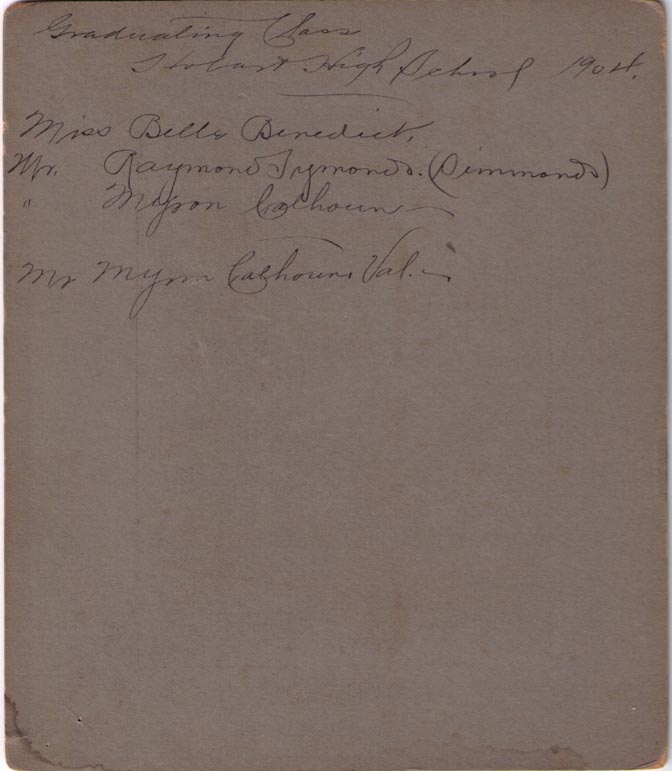 Graduating Class
Hobart High School 1904.
Miss Belle Benedict,
Mr. Raymond Symonds. (Simmonds)
" Myron Calhoun
Mr Myron Calhoun, Val.